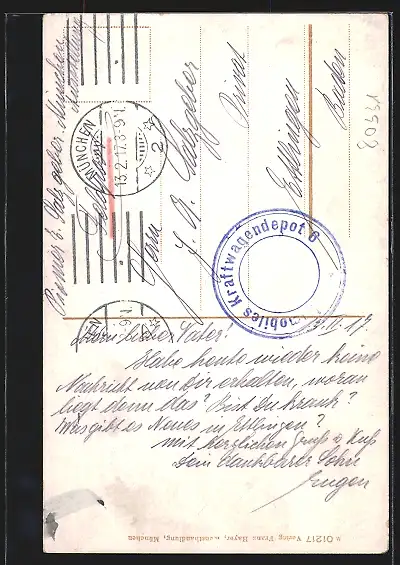 Pionier E. Salzgeber, München
Feldpost
MÜNCHEN
13.2.17. 8-9V.
2
Herrn
J. A. Salzgeber
Privat
Ettlingen
Baden
Mobiles Kraftwagendepot 6
13503
Mein lieber Vater!
Habe heute wieder keine
Nachricht von dir erhalten, woran
liegt denn das? Bist Du krank?
Was gibt es Neues in Ettlingen?
mit herzlichen Gruß u Kuß
Dein dankbarer Sohn
Eugen
01217 Verlag Franz Hayer, Kunsthandlung, München